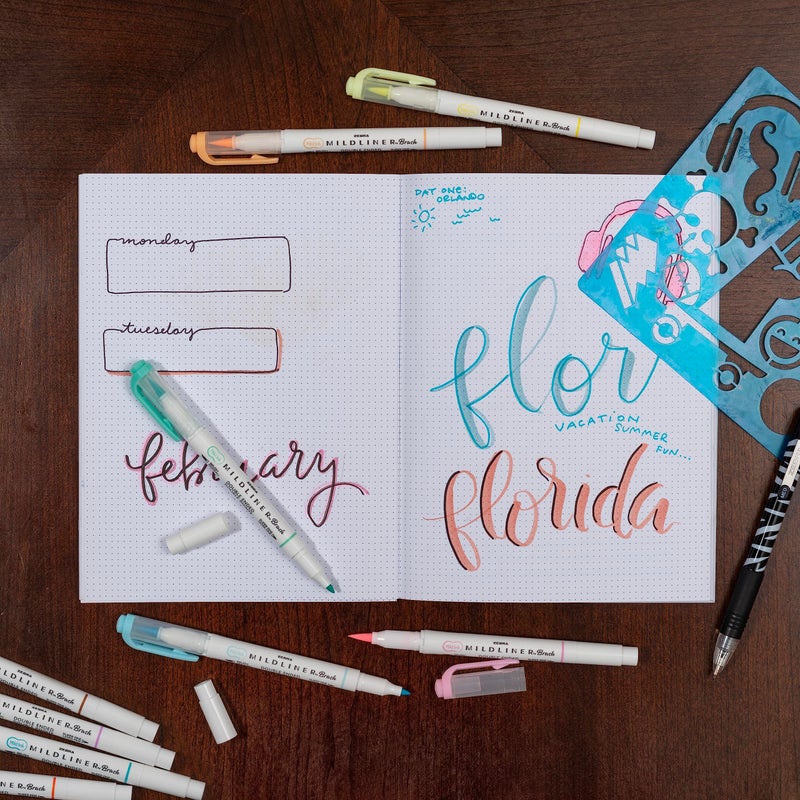 ZEBRA
MILDLINER Brush
ZEBRA
MILDLINER Brush
DOUBLE ENDED
monday
tuesday
february
DAT ONE:
ORLANDO
flor
VACATION
SUMMER
FUN...
florida
MILDLINER Brush
DOUBLE ENDED
ZEBRA
MILDLINER Brush
ZEBRA
MILDLINER Brush
MILDLINER Brush
MILDLINER Brush
DOUBLE ENDED
ZEBRA
MILDLINER Brush
DOUBLE ENDED
MILDLINER Brush